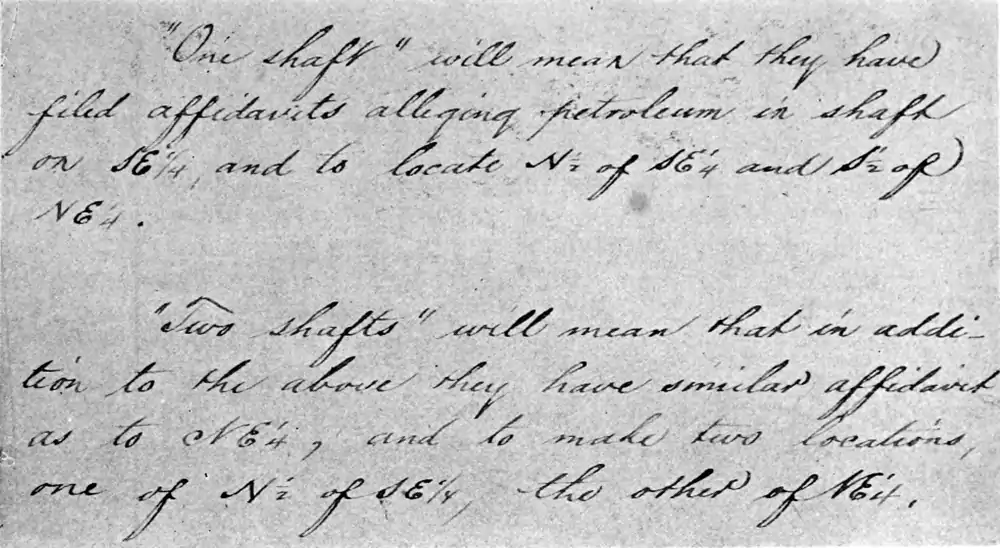 "One shaft" will mean that they have
filed affidavits alleging petroleum in shaft
on SE¼, and to locate N½ of SE¼ and S½ of
NE¼.
"Two shafts" will mean that in addi-
tion to the above they have similar affidavit
as to NE¼, and to make two locations,
one of N½ of SE¼, the other of NE¼.